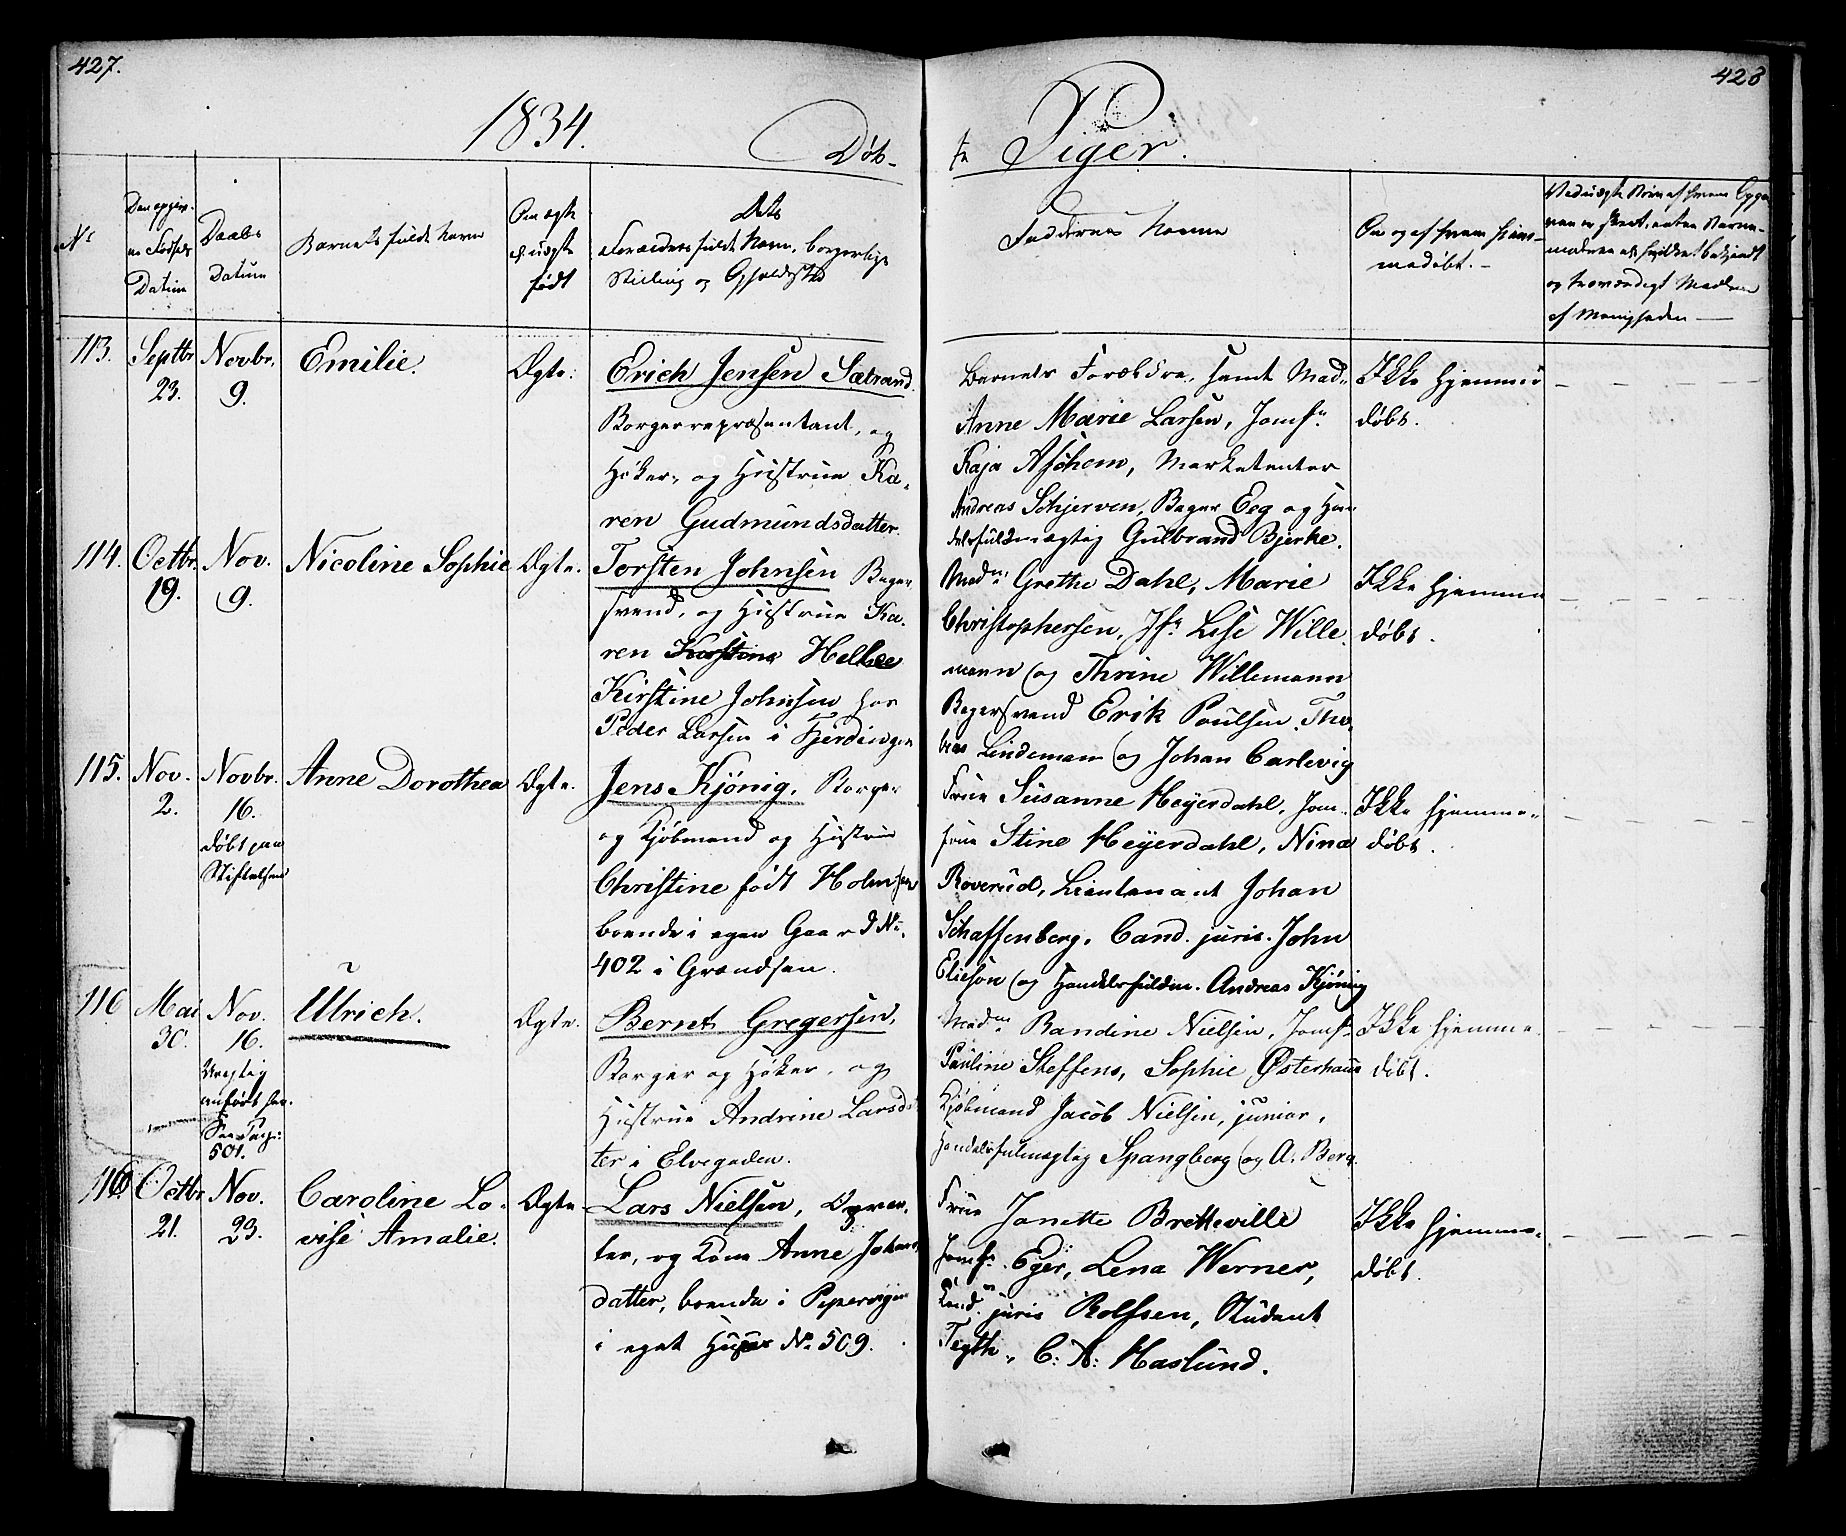 427.
428
1834.
Døb-
te Piger.
No
Den opgiv-
ne Fødsels
Datum
Daabs
Datum
Barnets fulde Navn
Om ægte
el. uægte
født
Dets
Forældres fulde Navn, borgerlige
Stilling og Opholdssted
Faddernes Navne
Om og af hvem hjem-
medøbt.-
113.
Septbr.
23.
Novbr.
9.
Emilie.
Ægte.
Erich Jensen Sætrand.
Borgerrepræsentant, og
Høker, og Hustrue Ka-
ren Gudmundsdatter.
Barnets Forældre, samt Mad.
Anne Marie Larsen, Jomfr.
Kaja Aschem, Marketenter
Andreas Schjerven, Bager Eeg og Han-
delsfuldmægtig Gulbrand Bjerke.
Ikke hjemme
døbt.
114.
Octbr.
19.
Nov.
9.
Nicoline Sophie
Ægte.
Torsten Johnsen Bager
svend, og Hustrue Ka-
ren Kirstine
Kirstine Johnsen hos
Peder Larsen i Fjerdingen
Madm. Grethe Dahl, Marie
Christophersen, Jfr. Lise Wille
mann og Thrine Willemann
Bagersvend Erik Poulsen, Tho-
Lindemann og Johan Carlevig
Ikke hjemme
døbt.
115.
Nov.
2.
Novbr.
16.
døbt paa
Stiftelsen
Anne Dorothea
Ægte.
Jens Kjønig, Borger
og Kjøbmand og Hustrue
Christine født Holmsen
boende i egen Gaard No.
402 i Grændsen.
Frue Susanne Heyerdahl, Jom-
frue Stine Heyerdahl, Nina
Roverud, Lieutenant Johan
Schaffenberg, Cand. juris. John
Elieson og Handelsfuldm. Andreas Kjønig
Ikke hjemme-
døbt.
116
Mai
30.
Nov.
16.
Urigtig
anført her.
501.
Ulrich.
Ægte.
Bernt Gregersen,
Borger og Høker, og
Hustrue Andrine Larsdat
ter i Elvegaden.
Madm Randine Nielsen, Jomfr.
Pauline Steffens, Sophie Østerhaus
Kjøbmand Jacob Nielsen, junior,
Handelsfulmægtig Spangberg og A. Berg.
Ikke hjemme
døbt.
116
Octbr.
21.
Nov.
23.
Caroline Lo-
vise Amalie.
Ægte
Lars Nielsen, Opvar-
ter, og Kone Anne Johans
datter, boende i Pipervigen
i eget Huus No. 509.
Frue Janette Bretteville
Jomfr. Eger, Lena Werner,
Cand. juris Rolfsen, Student
Tegth, C. A. Haslund.
Ikke hjemme-
døbt.